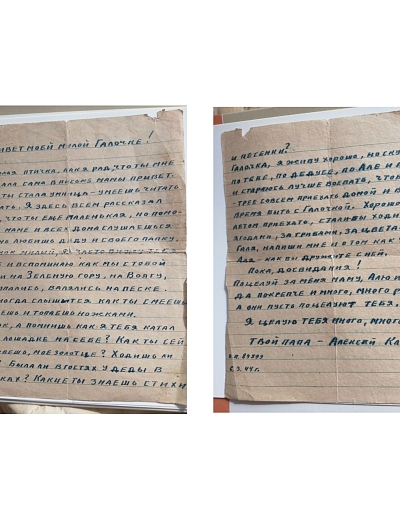 ИВЕТ МОЕЙ МИЛОЙ ГАЛОЧКЕ!
ПТИЧКА, КАК Я РАД, ЧТО ТЫ МНЕ
АЛА САМА В ПИСЬМЕ МАМЫ ПРИВЕТ.
ТЫ СТАЛА УМНИЦА - УМЕЕШЬ ЧИТАТЬ
АТЬ. Я ЗДЕСЬ ВСЕМ РАССКАЗАЛ
ЧТО ТЫ ЕЩЕ МАЛЕНЬКАЯ, НО ПОМО-
МАМЕ И ВСЕХ ДОМА СЛУШАЕШЬСЯ
НО ЛЮБИШЬ ДИДУ И СВОЕГО ПАПКУ.
МИЛЫЙ, Я ЧАСТО ВИЖУ ТЕБЯ
Е И ВСПОМИНАЮ КАК МЫ С ТОБОЙ
И НА ЗЕЛЕНУЮ ГОРУ, НА ВОЛГУ,
УПАЛИСЬ, ВАЛЯЛИСЬ НА ПЕСКЕ.
НОГДА СЛЫШИТСЯ КАК ТЫ СМЕЕШЬ
ЕШЬ И ТОПАЕШЬ НОЖКАМИ.
К, А ПОМНИШЬ КАК Я ТЕБЯ КАТАЛ
ЛОШАДКЕ НА СЕБЕ? КАК ТЫ СЕЙ
АЕШЬ, МОЕ ЗОЛОТЦЕ? ХОДИШЬ ЛИ
БЫЛА ЛИ В ГОСТЯХ У ДЕДЫ В
КАХ? КАКИЕ ТЫ ЗНАЕШЬ СТИХИ
И ПЕСЕНКИ?
ГАЛОЧКА, Я ЖИВУ ХОРОШО, НО СКУ
ПО ТЕБЕ, ПО ДЕДУСЕ, ПО АЛЕ И
И СТАРАЮСЬ ЛУЧШЕ ВОЕВАТЬ, ЧТОБ
ТРЕЕ СОВСЕМ ПРИЕХАТЬ ДОМОЙ И В
ВРЕМЯ БЫТЬ С ГАЛОЧКОЙ. ХОРОШО
ЛЕТОМ ПРИЕХАТЬ, СТАЛИ БЫ ХОДИ
ЯГОДАМИ, ЗА ГРИБАМИ, ЗА ЦВЕТА
ГАЛЯ, НАПИШИ МНЕ И О ТОМ КАК
АЛЯ КАК ВЫ ДРУЖИТЕ С НЕЙ.
ПОКА, ДОСВИДАНИЯ!
ПОЦЕЛУЙ ЗА МЕНЯ МАМУ, АЛЮ И
ДА ПОКРЕПЧЕ И МНОГО, МНОГО Р
А ОНИ ПУСТЬ ПОЦЕЛУЮТ ТЕБЯ.
Я ЦЕЛУЮ ТЕБЯ МНОГО, МНОГО
ТВОЙ ПАПА - АЛЕКСЕЙ КА